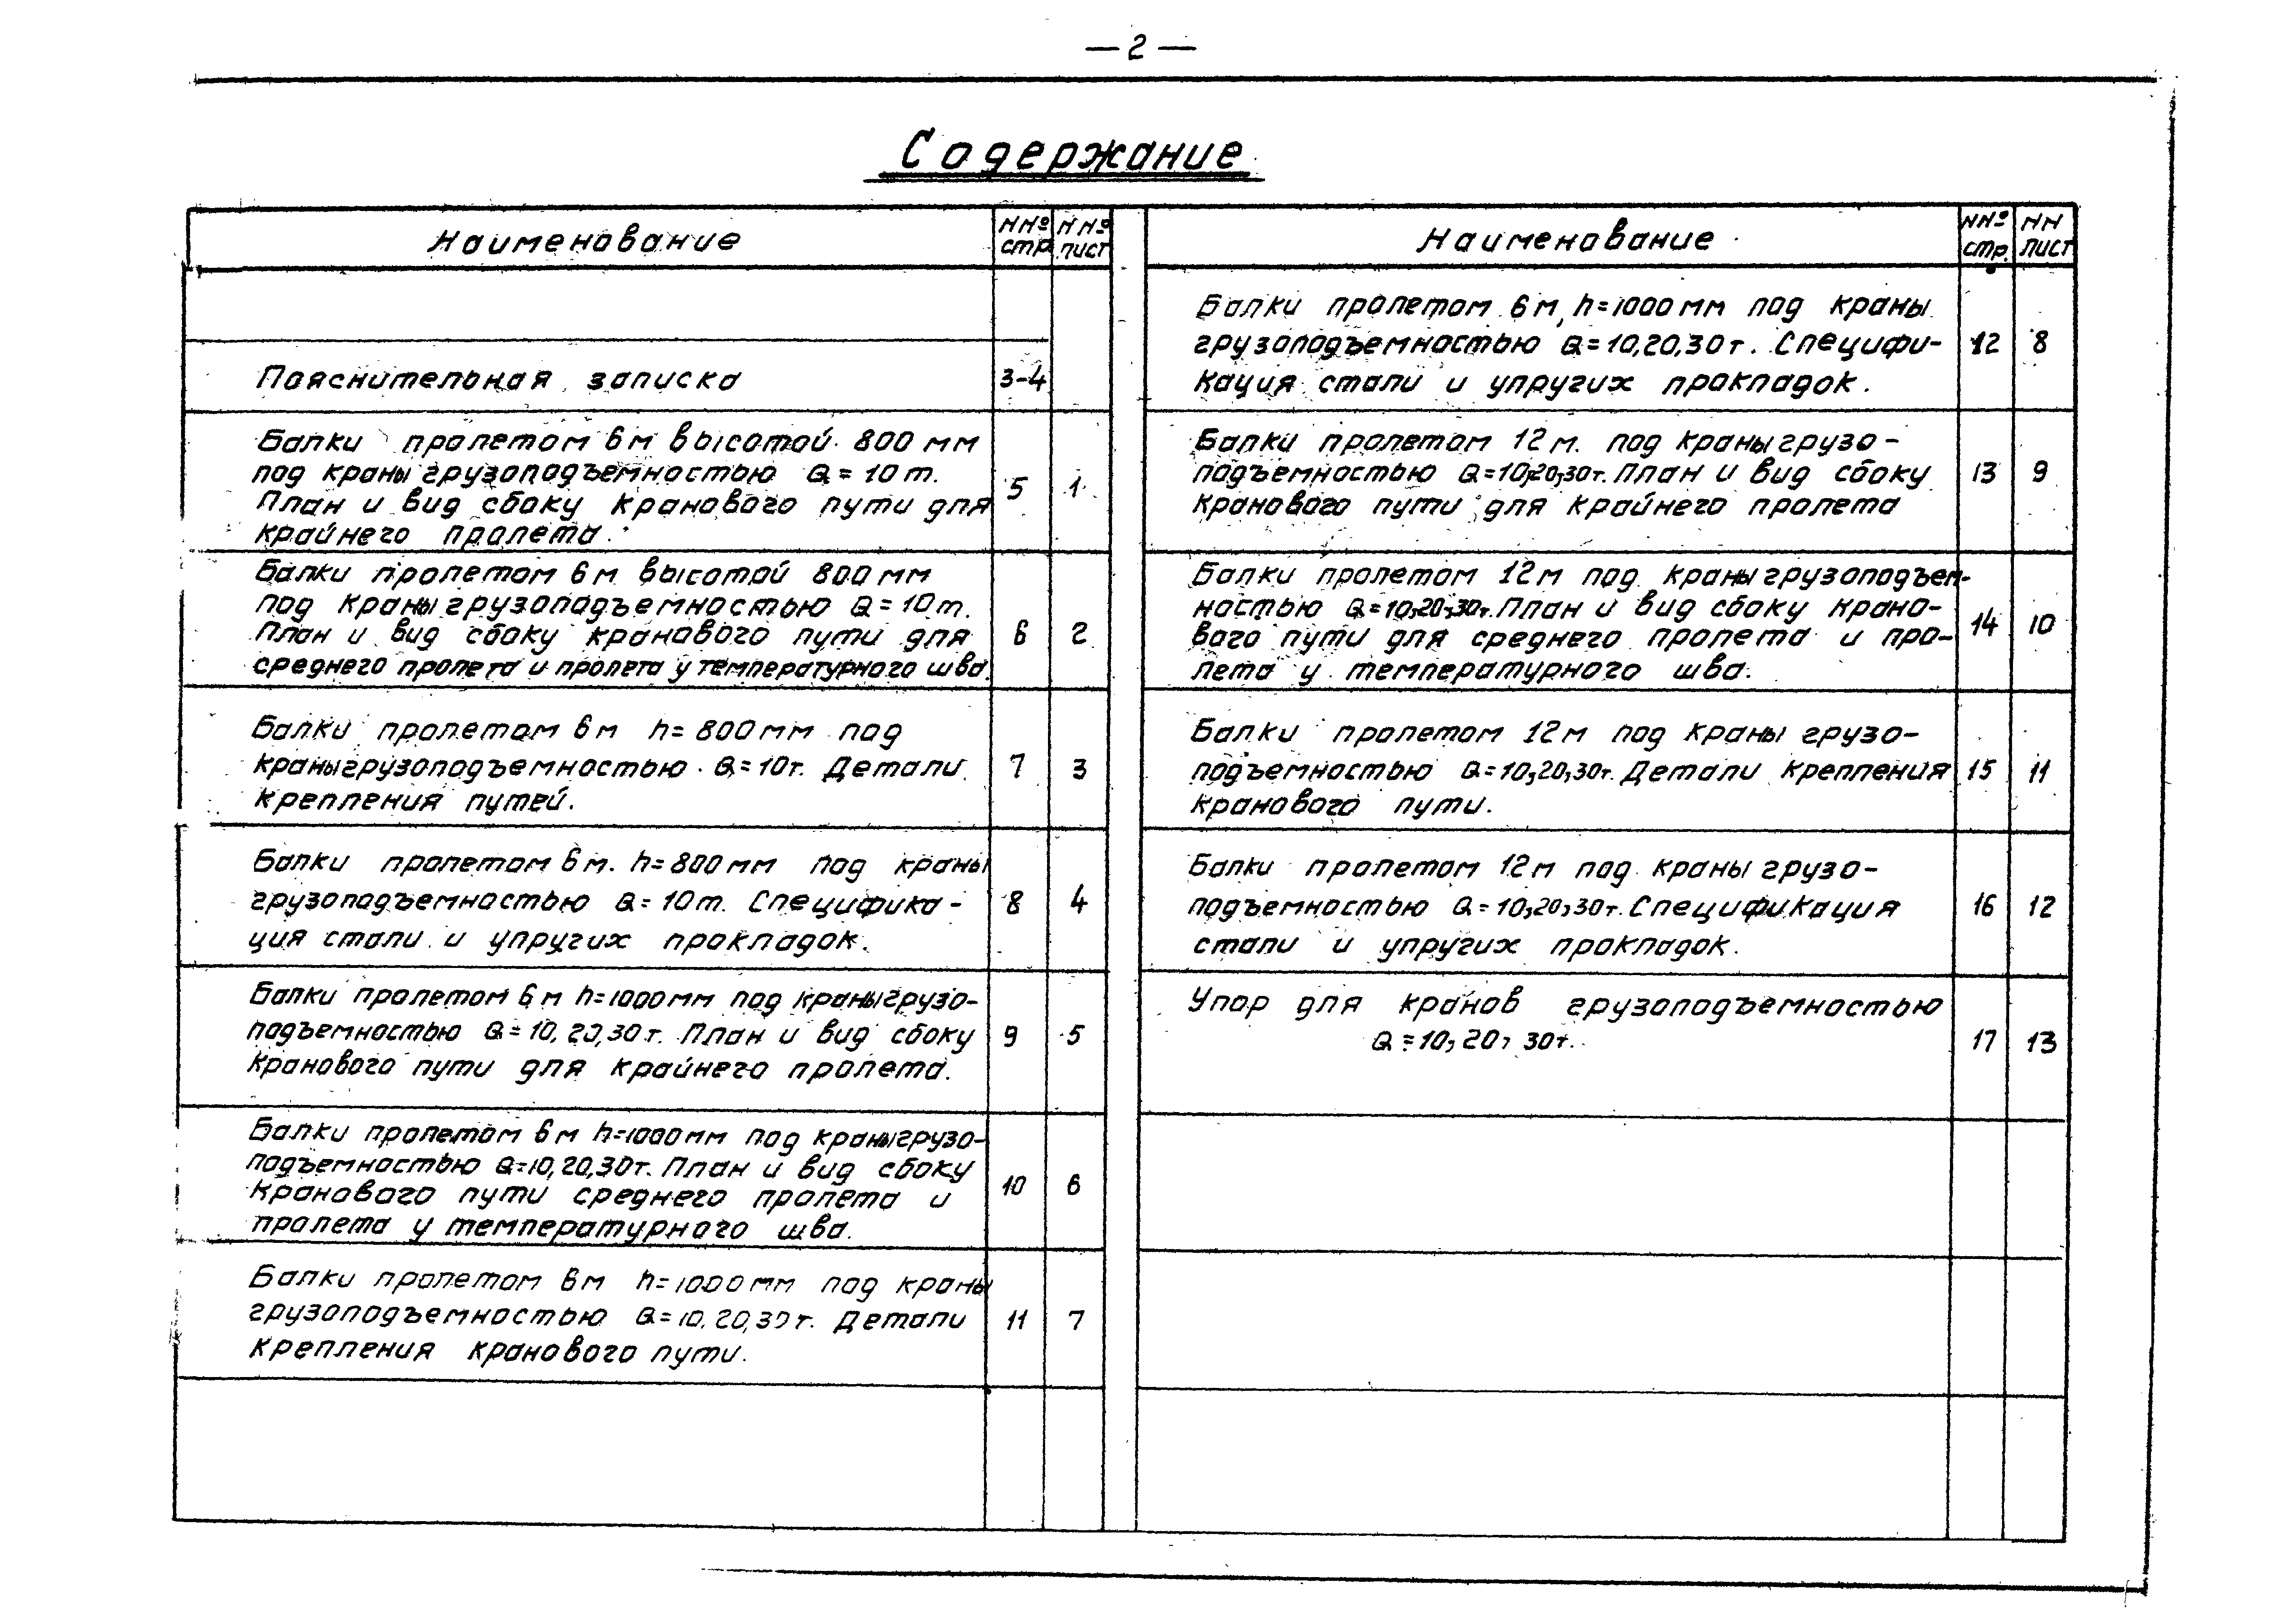 — 2 —
Содержание
Наименование
ННº
стр.
ННº
лист
Пояснительная записка
3-4
Балки пролетом 6м высотой 800 мм
под краны грузоподъемностью Q = 10 т.
План и вид сбоку кранового пути для
крайнего пролета.
5
1
Балки пролетом 6м высотой 800 мм
под краны грузоподъемностью Q = 10 т.
План и вид сбоку кранового пути для
среднего пролета и пролета у температурного шва.
6
2
Балки пролетом 6м h= 800 мм под
краны грузоподъемностью Q=10т. Детали
крепления путей.
7
3
Балки пролетом 6 м. h=800 мм под краны
грузоподъемностью Q= 10 т. Специфика-
ция стали и упругих прокладок.
8
4
Балки пролетом 6 м h=1000 мм под краны грузо-
подъемностью Q = 10, 20, 30 т. План и вид сбоку
кранового пути для крайнего пролета.
9
5
Балки пролетом 6 м h=1000мм под краны грузо-
подъемностью Q=10, 20, 30т. План и вид сбоку
кранового пути среднего пролета и
пролета у температурного шва.
10
6
Балки пролетом 6м h=1000 мм под краны
грузоподъемностью Q=10, 20, 30 т. Детали
крепления кранового пути.
11
7
Наименование
ННº
стр.
НН
лист
Балки пролетом 6 м, h=1000 мм под краны
грузоподъемностью Q=10,20,30т. Специфи-
кация стали и упругих прокладок.
12
8
Балки пролетом 12 м. под краны грузо-
подъемностью Q=10,20,30т. План и вид сбоку
кранового пути для крайнего пролета
13
9
Балки пролетом 12м под краны грузоподъем-
ностью Q=10,20,30т. План и вид сбоку крано-
вого пути для среднего пролета и про-
лета у температурного шва.
14
10
Балки пролетом 12м под краны грузо-
подъемностью Q=10,20,30т. Детали крепления
кранового пути.
15
11
Балки пролетом 12м под краны грузо-
подъемностью Q=10,20,30т. Спецификация
стали и упругих прокладок.
16
12
Упор для кранов грузоподъемностью
Q=10, 20, 30т.
17
13